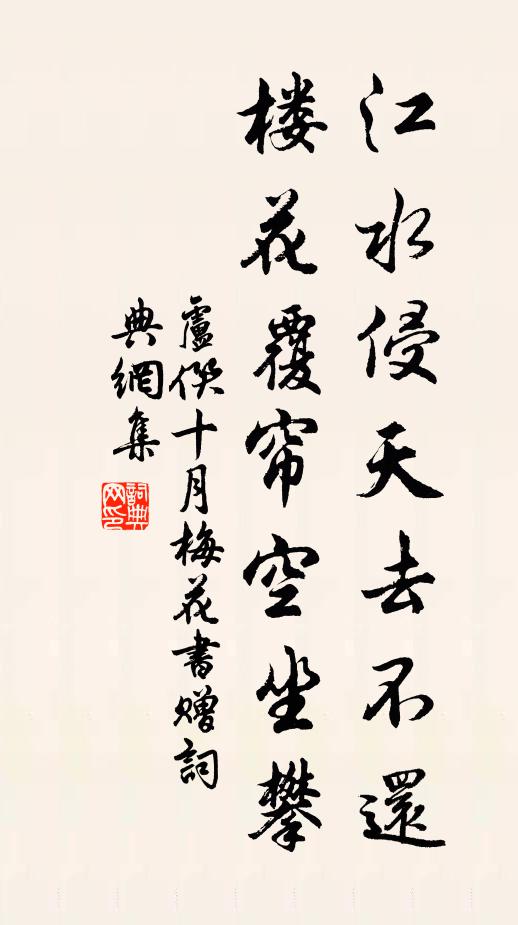 江水侵天去不還
楼花覆帘空坐攀
盧僎十月梅花書贈詞
典網集
詞典网印